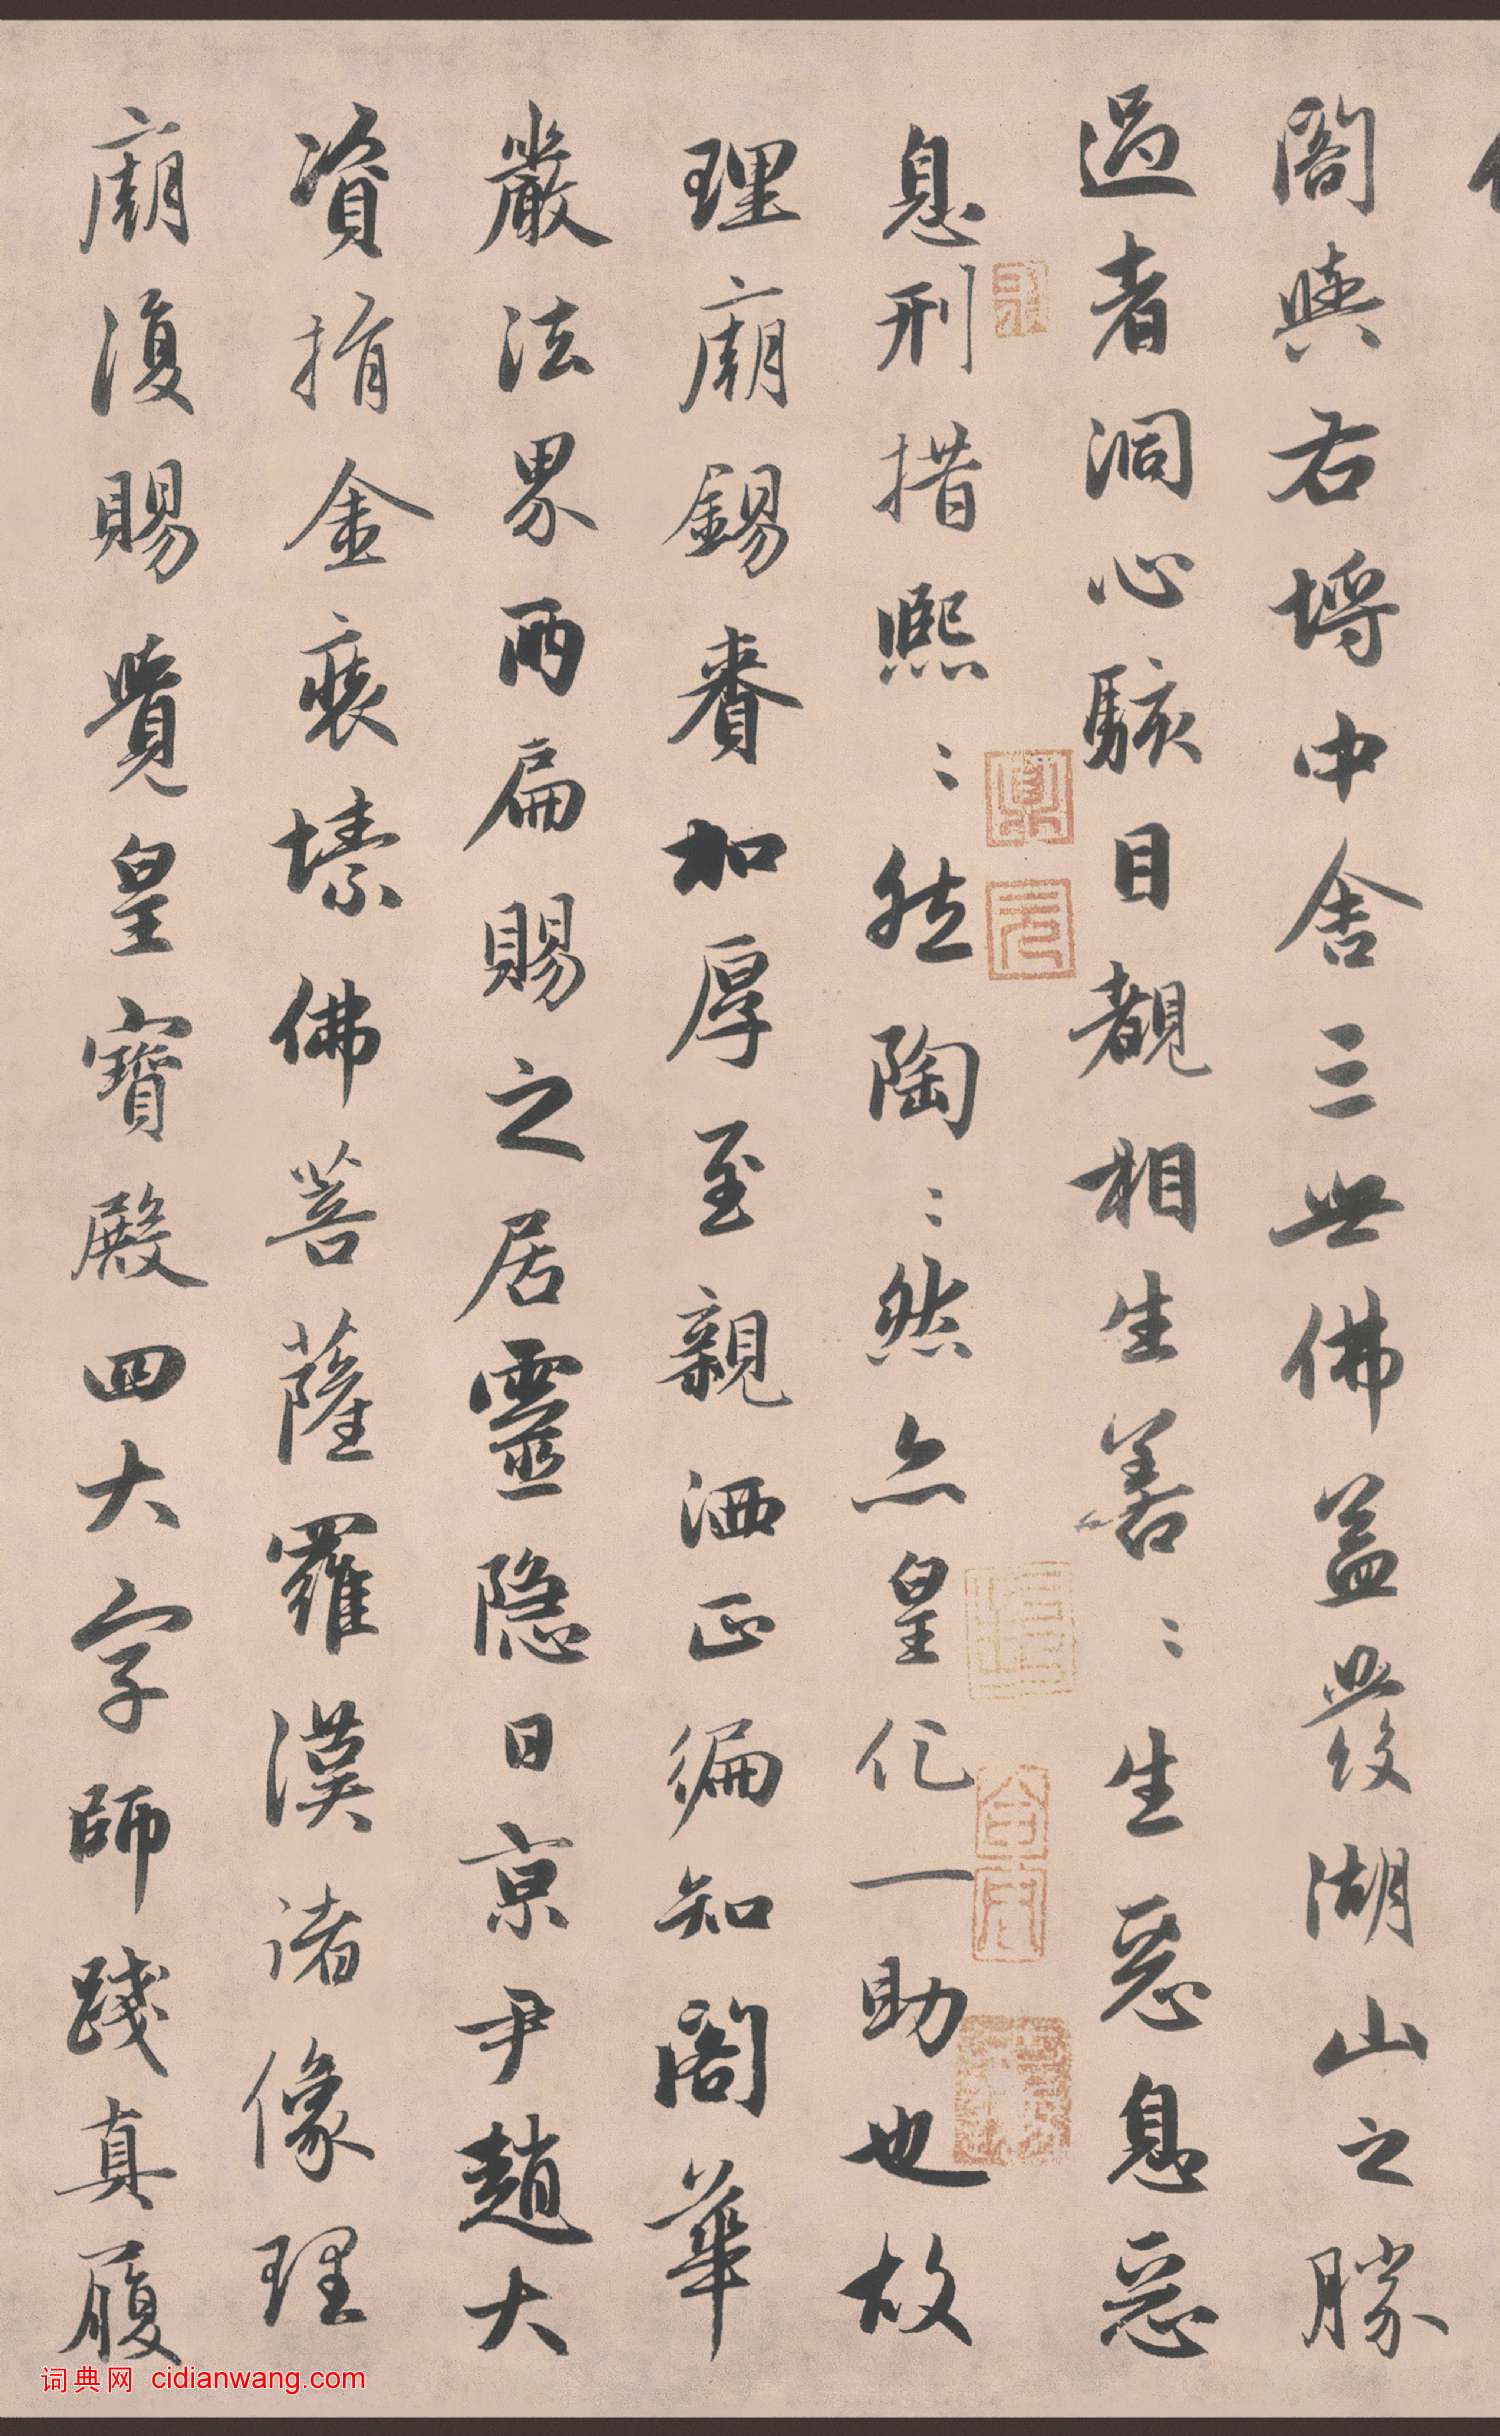 阁与右埒中舍三世佛盖发湖山之胜
過者洞心駭目覩相生善〻生惡息惡
息刑措熙〻然陶〻然亦皇化一助也故
理廟錫賚加厚至親洒正徧知閣華
嚴法界兩扁賜之居靈隐日京尹趙大
資捐金裒塐佛菩薩羅漢諸像理
廟復賜覺皇寶殿四大字師踐真履
词典网 cidianwang.com